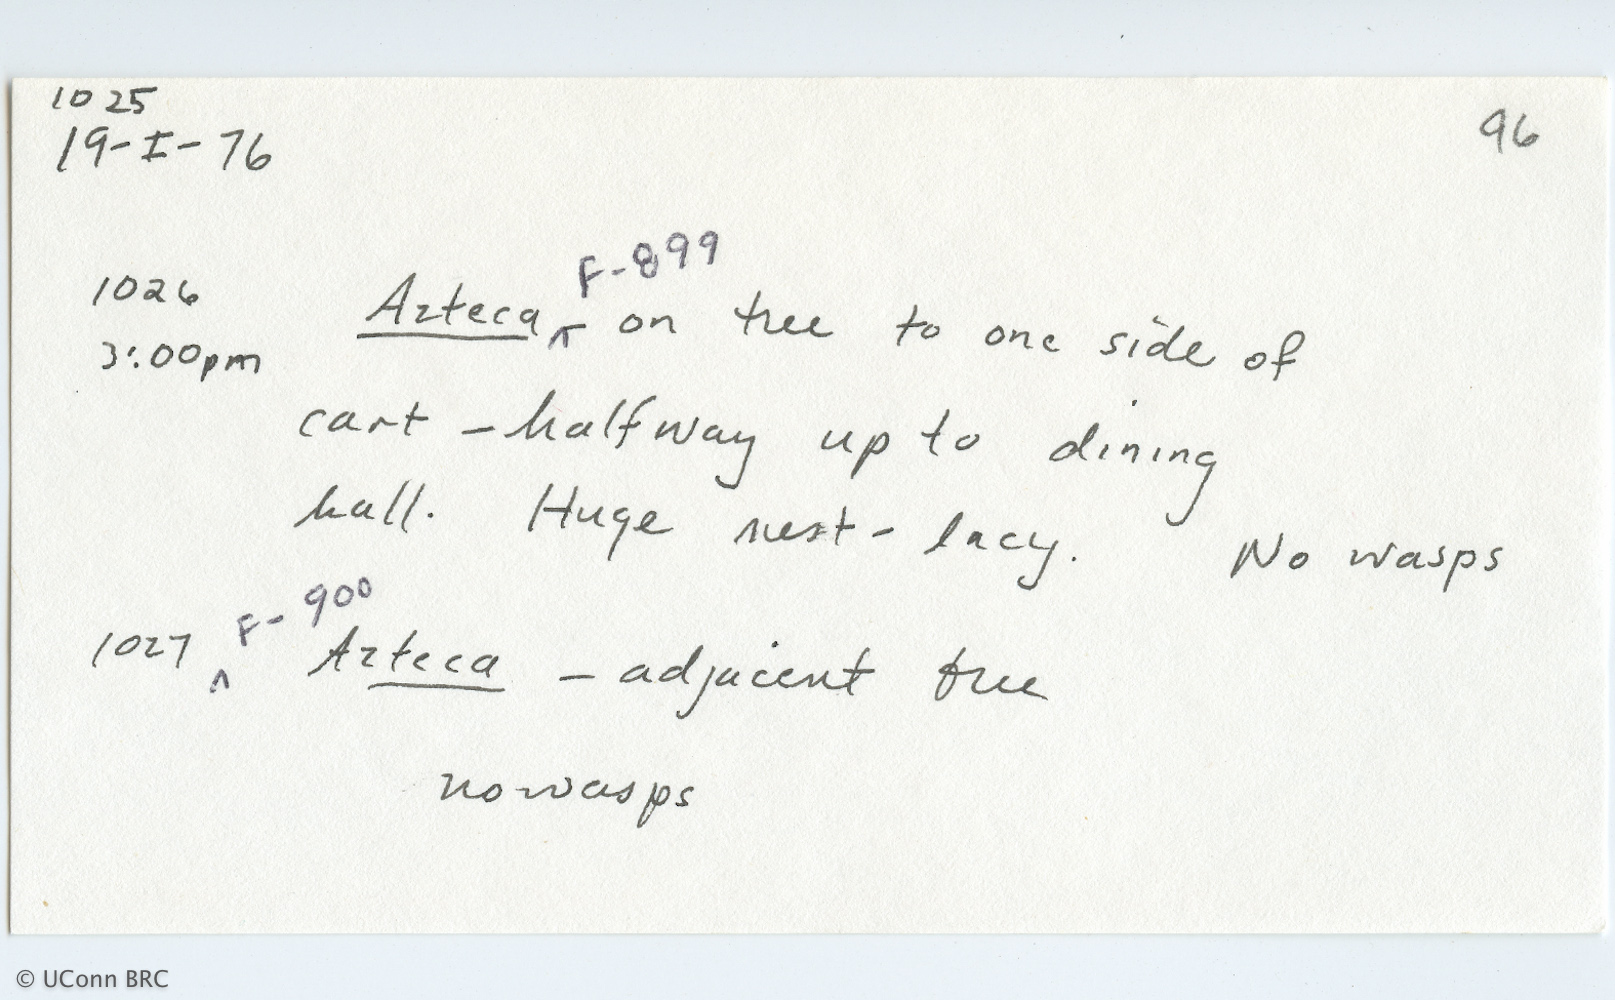 1025
19-I-76
96
F-899
1026 Azteca ^ - on tree to one side of
3:00pm
cart - halfway up to dining
hall. Huge nest - lacy. No wasps
F-900
1027 ^ Azteca - adjacent tree
no wasps
© UConn BRC